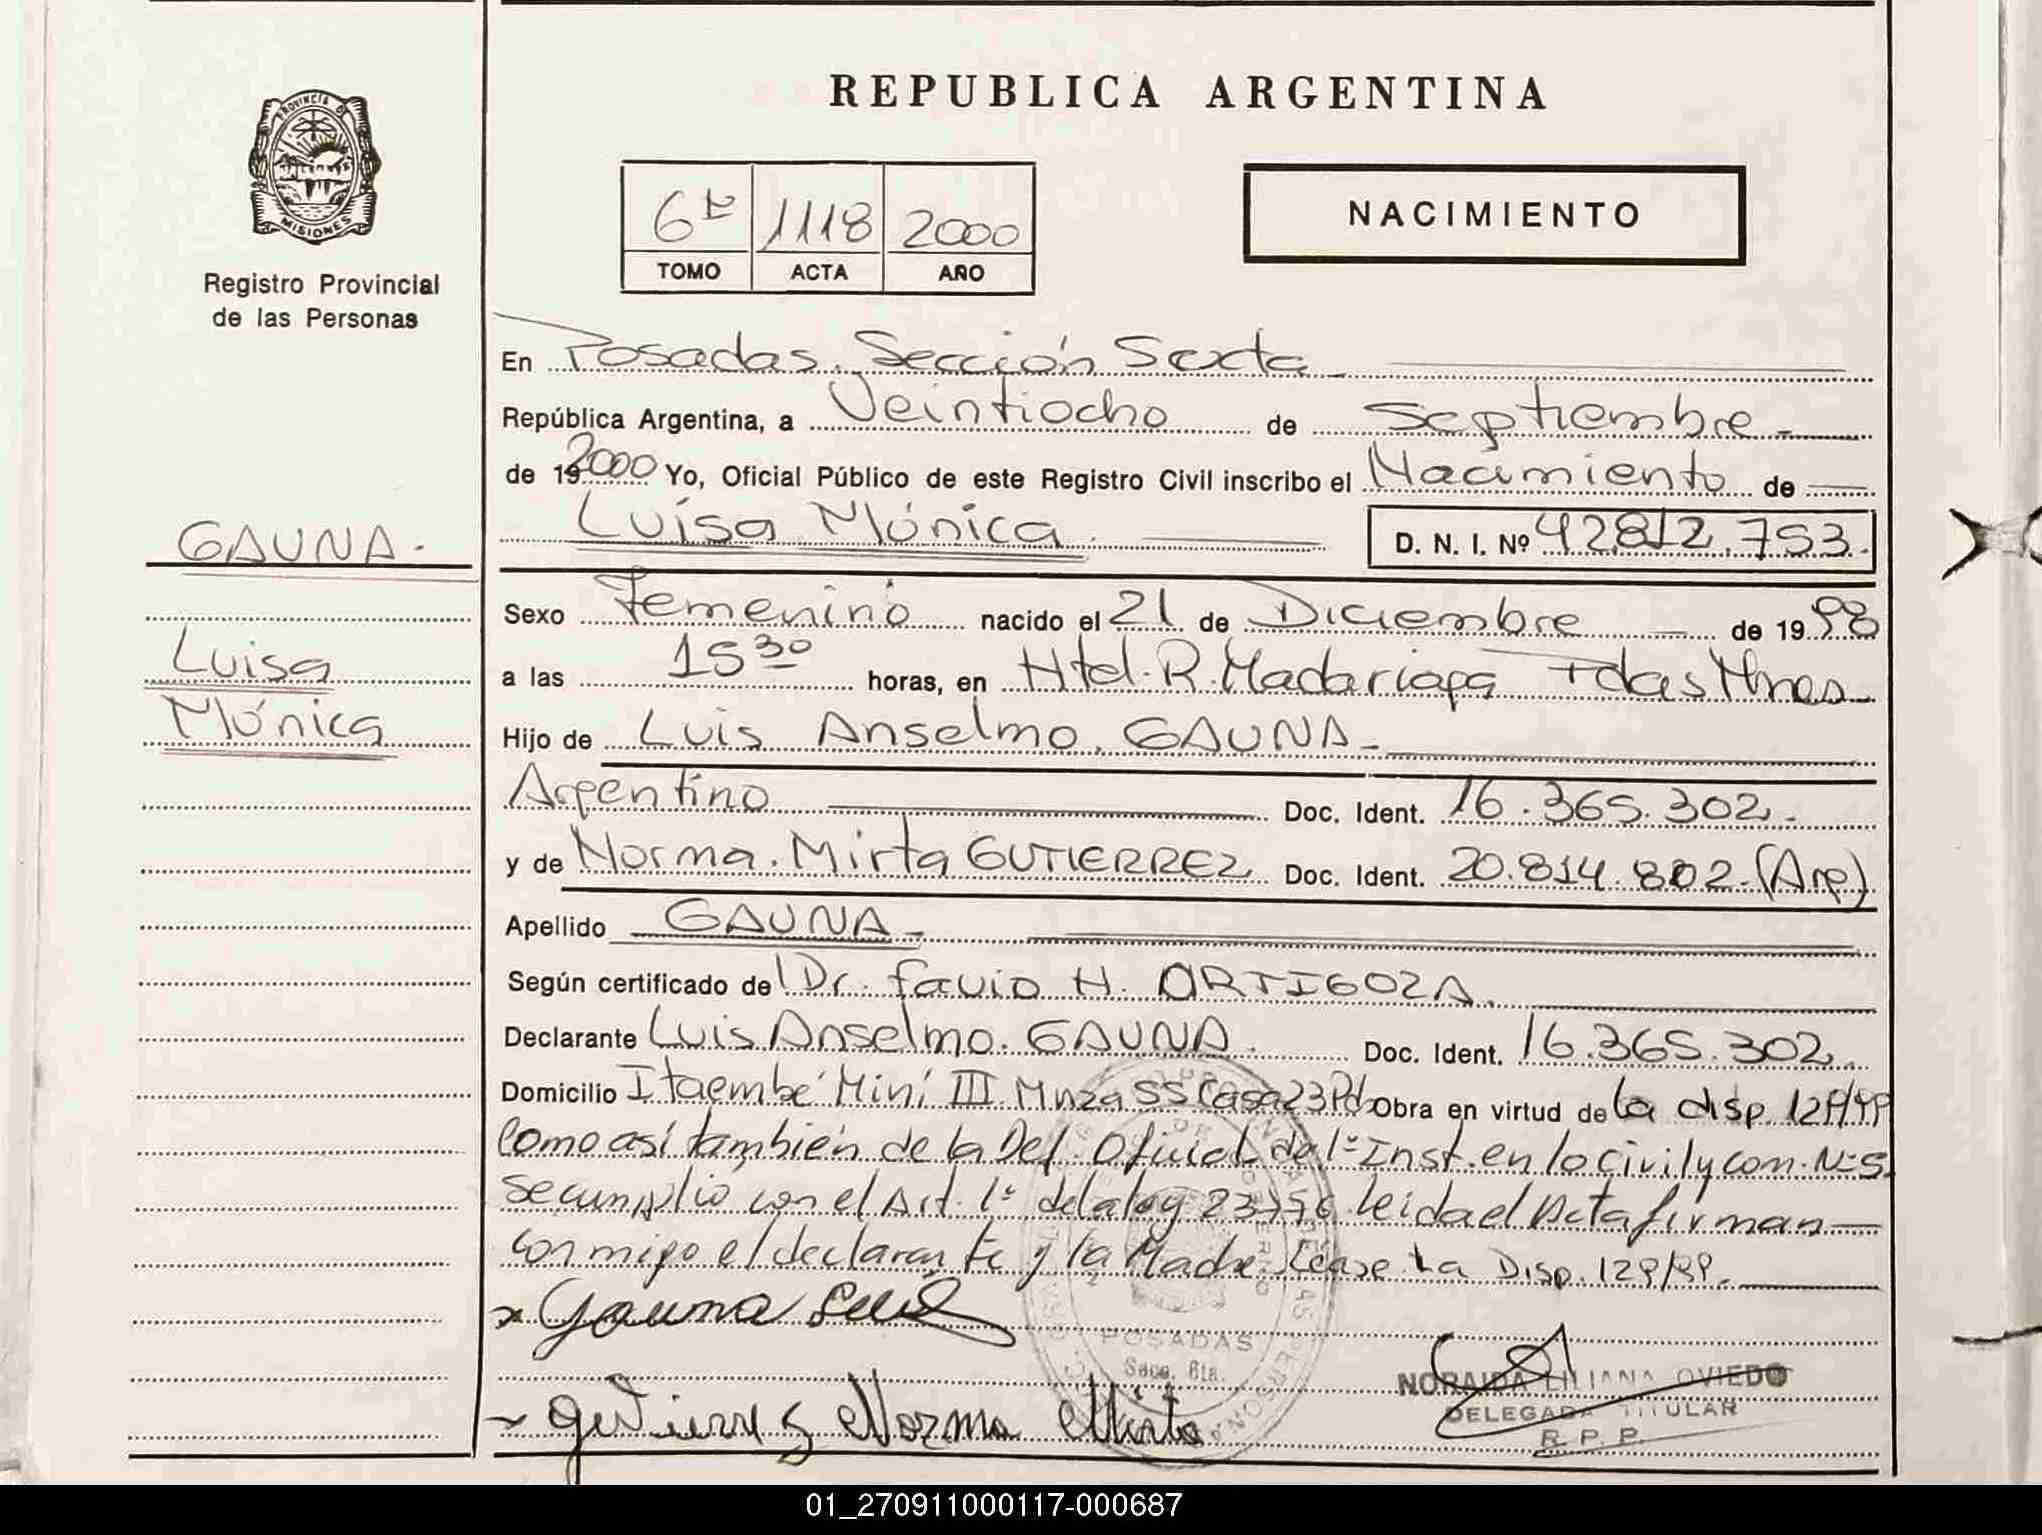 REPUBLICA ARGENTINA
PROVINCIA DE
MISIONES
Registro Provincial
de las Personas
6ta 1118 2000
TOMO ACTA AÑO
NACIMIENTO
En Posadas. Sección Sexta
República Argentina, a Veintiocho de Septiembre
de 19 2000 Yo, Oficial Público de este Registro Civil inscribo el Nacimiento de
Luisa Mónica D. N. I. Nº 42.812.753.
GAUNA.
Luisa
Mónica
Sexo Femenino nacido el 21 de Diciembre de 19 98
a las 15 30 horas, en Htal. R. Madariaga Pdas Mnes
Hijo de Luis Anselmo GAUNA
Argentino Doc. Ident. 16.365.302.
y de Norma Mirta GUTIERREZ Doc. Ident. 20.814.802. (Arg)
Apellido GAUNA
Según certificado de Dr. Favio H. ORTIGOZA
Declarante Luis Anselmo GAUNA Doc. Ident. 16.365.302
Domicilio Itaembé Miní III Mnza SS Casa 23 Pds Obra en virtud de la disp. 129/99
Como así también de la Def. Oficial de 1º Inst. en lo civil y com. Nº 5.
se cumplio con el Art. 1º de la ley 23776 leida el Acta firman
conmigo el declarante y la Madre Léase La Disp. 129/99.
Gauna Luis
POSADAS
Secc. 6ta.
Gutierrez Norma Mirta
NORAIDA LILIANA OVIEDO
DELEGADA TITULAR
R. P. P.
01_270911000117-000687